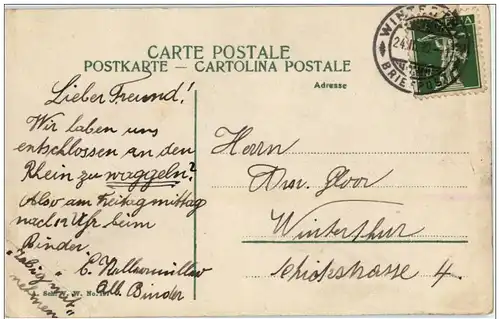 CARTE POSTALE
POSTKARTE — CARTOLINA POSTALE
Adresse
WINTERTHUR
BRIEFPOST
Lieber Freund!
Wir haben uns
entschlossen an den
Rhein zu waggeln?
Also am Freitag mittag
nach 12 Uhr beim
Binder.
Alb. Binder
nehmen
Herrn
Gloor
Winterthur
Schickstrasse 4.